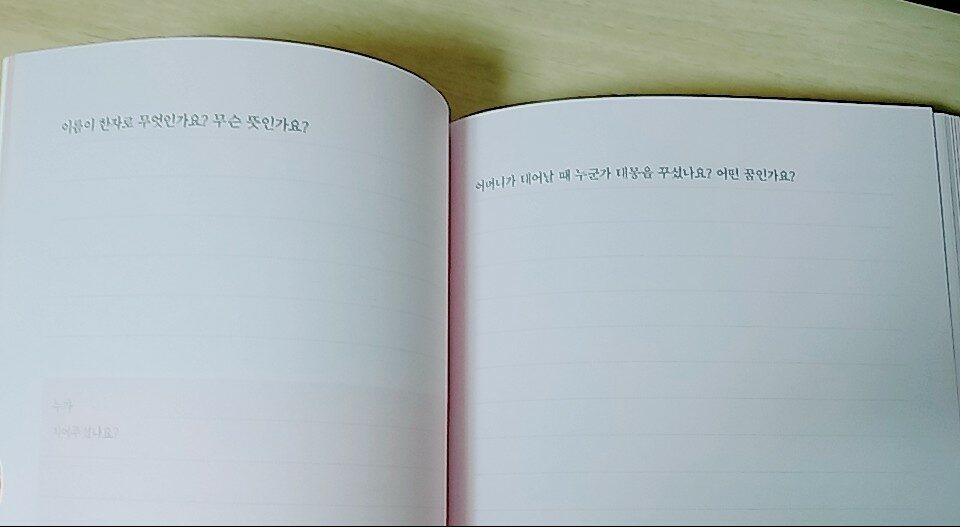 이름이 한자로 무엇인가요? 무슨 뜻인가요?
누가
지어주셨나요?
어머니가 태어날 때 누군가 태몽을 꾸셨나요? 어떤 꿈인가요?